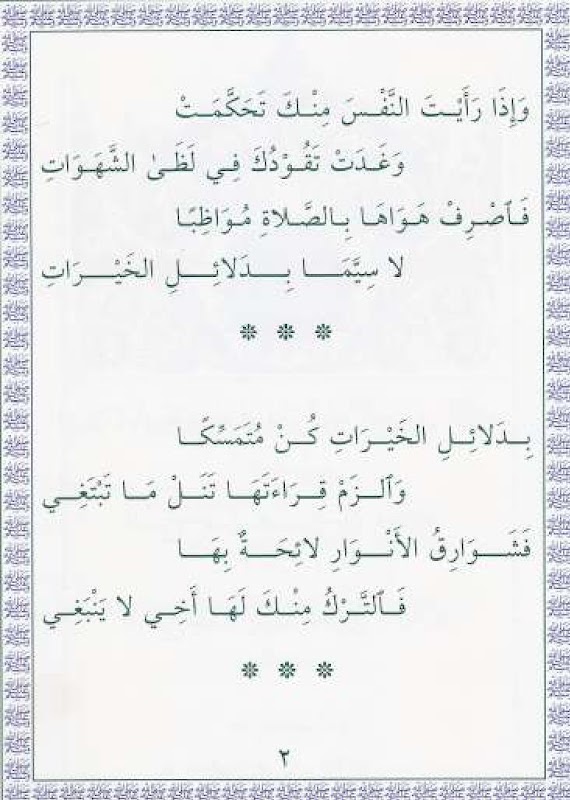 وَإِذَا رَأَيْتَ النَّفْسَ مِنْكَ تَحَكَّمَتْ
وَغَدَتْ تَقُوْدُكَ فِي لَظَىٰ الشَّهَوَاتِ
فَٱصْرِفْ هَوَاهَا بِالصَّلَاةِ مُوَاظِبًا
لا سِيَّمَا بِدَلائِلِ الخَيْرَاتِ
❊ ❊ ❊
بِدَلائِلِ الخَيْرَاتِ كُنْ مُتَمَسِّكًا
وَٱلزَمْ قِرَاءَتَهَا تَنَلْ مَا تَبْتَغِي
فَشَوَارِقُ الأَنْوَارِ لائِحَةٌ بِهَا
فَٱلتَّرْكُ مِنْكَ لَهَا أَخِي لا يَنْبَغِي
❊ ❊ ❊
٢